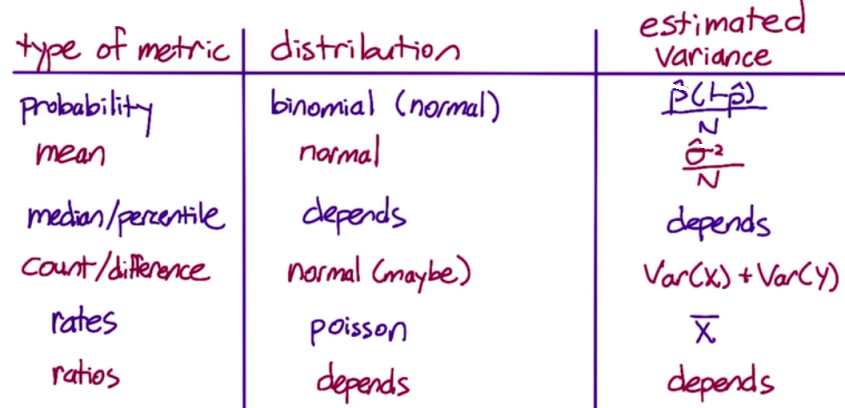 type of metric distribution estimated variance
probability binomial (normal) p̂(1-p̂)/N
mean normal σ̂²/N
median/percentile depends depends
count/difference normal (maybe) Var(X) + Var(Y)
rates poisson X̄
ratios depends depends